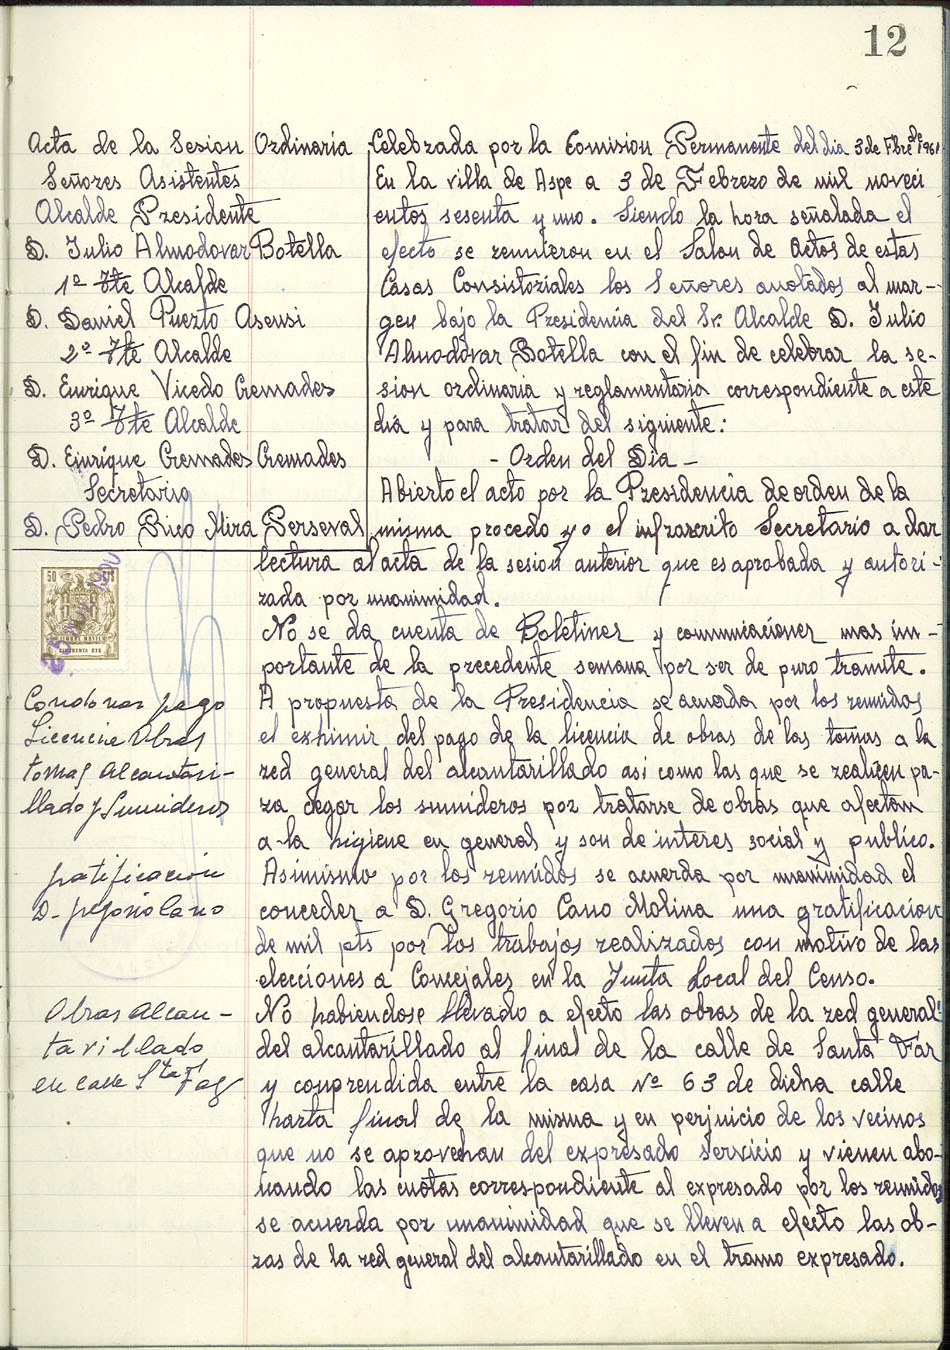 12
Acta de la Sesion Ordinaria Celebrada por la Comision Permanente del dia 3 de Fbre de 1961
Señores Asistentes
Alcalde Presidente
D. Julio Almodovar Botella
1º Tte Alcalde
D. Daniel Puerto Asensi
2º Tte Alcalde
D. Enrique Vicedo Cremades
3º Tte Alcalde
D. Enrique Cremades Cremades
Secretario
D. Pedro Rico Mira Perseval
En la villa de Aspe a 3 de Febrero de mil noveci
entos sesenta y uno. Siendo la hora señalada el
efecto se reunieron en el Salon de actos de estas
Casas Consistoriales los Señores anotados al mar-
gen bajo la Presidencia del Sr. Alcalde D. Julio
Almodóvar Botella con el fin de celebrar la se-
sion ordinaria y reglamentaria correspondiente a este
dia y para tratar del siguiente:
- Orden del Dia -
Abierto el acto por la Presidencia de orden de la
misma procedo yo el infrascrito Secretario a dar
lectura al acta de la sesion anterior que es aprobada y autori-
zada por unanimidad.
No se da cuenta de Boletines y comunicaciones mas im-
portante de la precedente semana por ser de puro tramite.
50 CTS
CINCUENTA CTS
Condonar pago
Licencias Obras
tomas alcantari-
llado y Sumideros
A propuesta de la Presidencia se acuerda por los reunidos
el exhimir del pago de la licencia de obras de las tomas a la
red general del alcantarillado asi como las que se realicen pa-
ra cegar los sumideros por tratarse de obras que afectan
a-la higiene en general y son de interes social y publico.
gratificacion
D. gregorio Cano
Asimismo por los reunidos se acuerda por unanimidad el
conceder a D. Gregorio Cano Molina una gratificacion
de mil pts por los trabajos realizados con motivo de las
elecciones a Concejales en la Junta Local del Censo.
Obras alcan-
tarillado
en calle Sta Faz
No habiendose llevado a efecto las obras de la red general
del alcantarillado al final de la calle de Santa Faz
y comprendida entre la casa Nº 63 de dicha calle
hasta final de la misma y en perjuicio de los vecinos
que no se aprovechan del expresado servicio y vienen abo-
nando las cuotas correspondiente al expresado por los reunidos
se acuerda por unanimidad que se lleven a efecto las ob-
ras de la red general del alcantarillado en el tramo expresado.